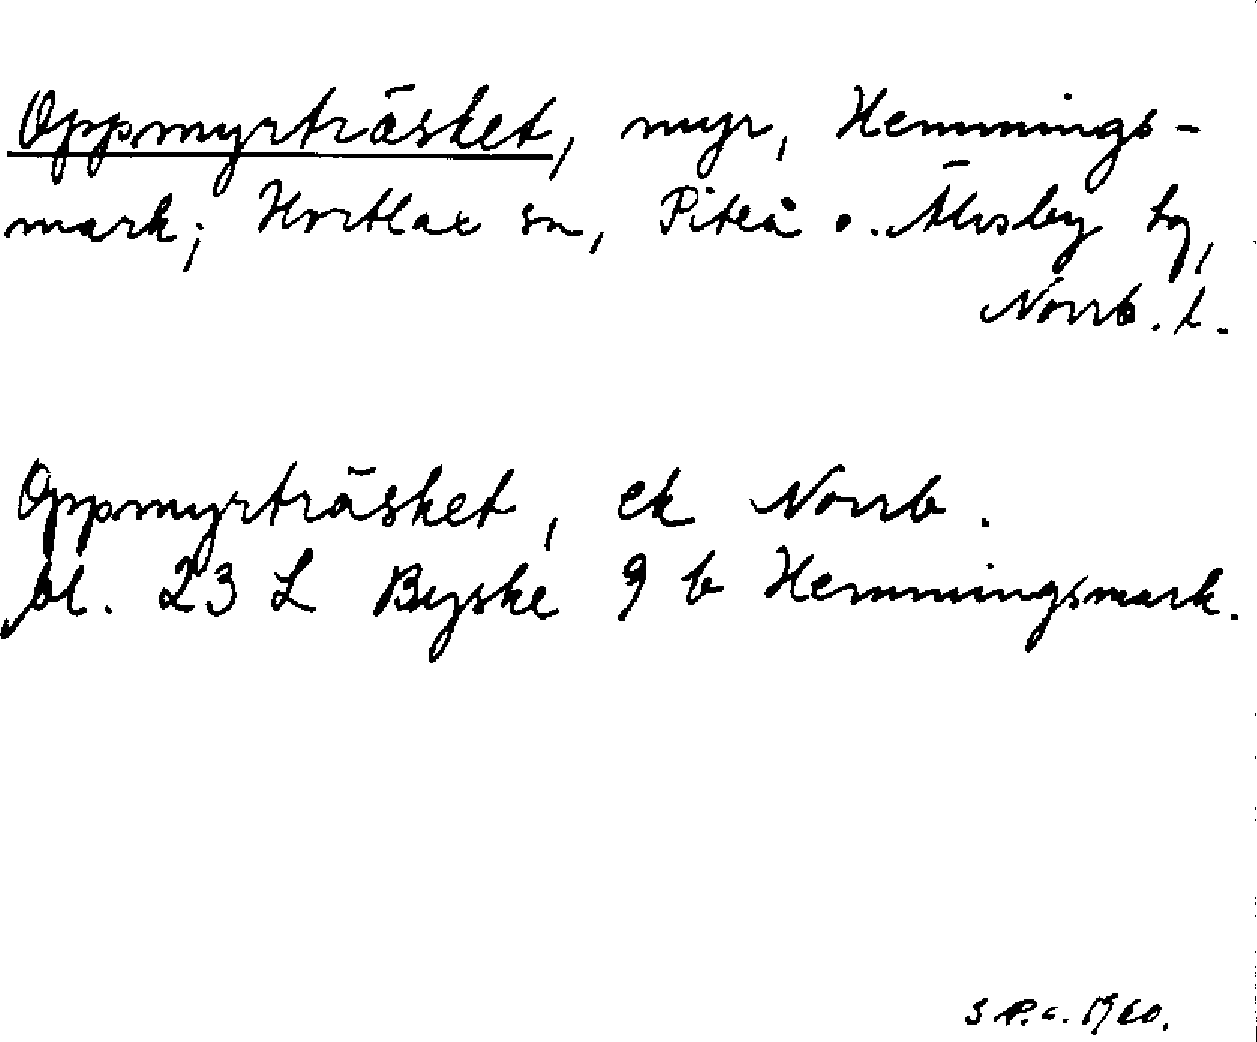 Oppmyrträsket, myr, Hemmings-
mark; Hortlax sn, Piteå o. Älvsby tg,
Norrb. l.
Oppmyrträsket, ek Norrb.
bl. 23 L Byske 9 b Hemmingsmark.
1960.